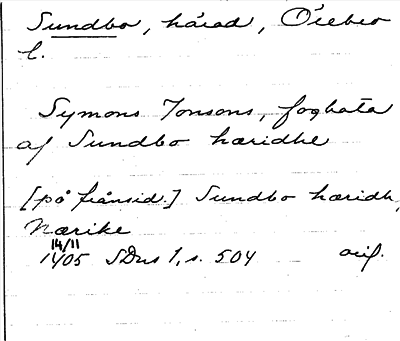 Sundbo, härad, Örebro
l.
Symons Jonsons, foghata
af Sundbo hæridhe
[på frånsid.] Sundbo hæridh,
Nærike
14/11
1405 SDns 1, s. 504 orig.